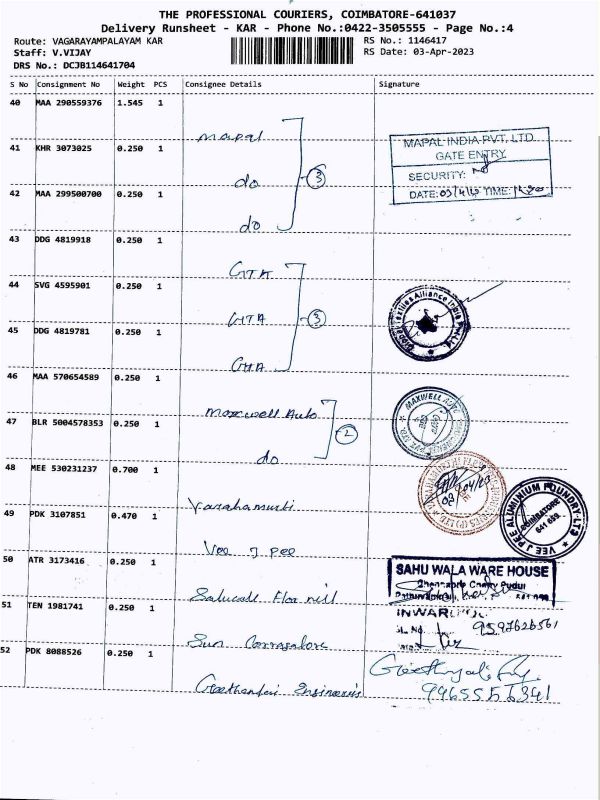 THE PROFESSIONAL COURIERS, COIMBATORE-641037
Delivery Runsheet - KAR - Phone No.:0422-3505555 - Page No.:4
Route: VAGARAYAMPALAYAM KAR
RS No.: 1146417
Staff: V.VIJAY
RS Date: 03-Apr-2023
DRS No.: DCJB114641704
S No Consignment No Weight PCS Consignee Details Signature
40 MAA 290559376 1.545 1
mapal
41 KHR 3073025 0.250 1
do
3
42 MAA 299500700 0.250 1
do
MAPAL INDIA PVT. LTD
GATE ENTRY
SECURITY:
DATE: 03/4/23 TIME:
43 DDG 4819918 0.250 1
GTA
44 SVG 4595901 0.250 1
GTA
3
45 DDG 4819781 0.250 1
GTA
Textiles Alliance India
46 MAA 570654589 0.250 1
Maxwell Auto
2
MAXWELL AUTO
47 BLR 5004578353 0.250 1
do
48 MEE 530231237 0.700 1
03/04/23
49 PDK 3107851 0.470 1
Vee J Pee
VEE J PEE ALUMINIUM FOUNDRY-LTD
COIMBATORE
641 659
50 ATR 3173416 0.250 1
SAHU WALA WARE HOUSE
51 TEN 1981741 0.250 1
Sun
INWARD
9597626561
52 PDK 8088526 0.250 1
9465556341